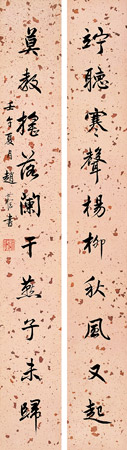 竚聽寒聲楊柳秋風又起
莫教搖落闌干燕子未歸
壬午夏月趙書